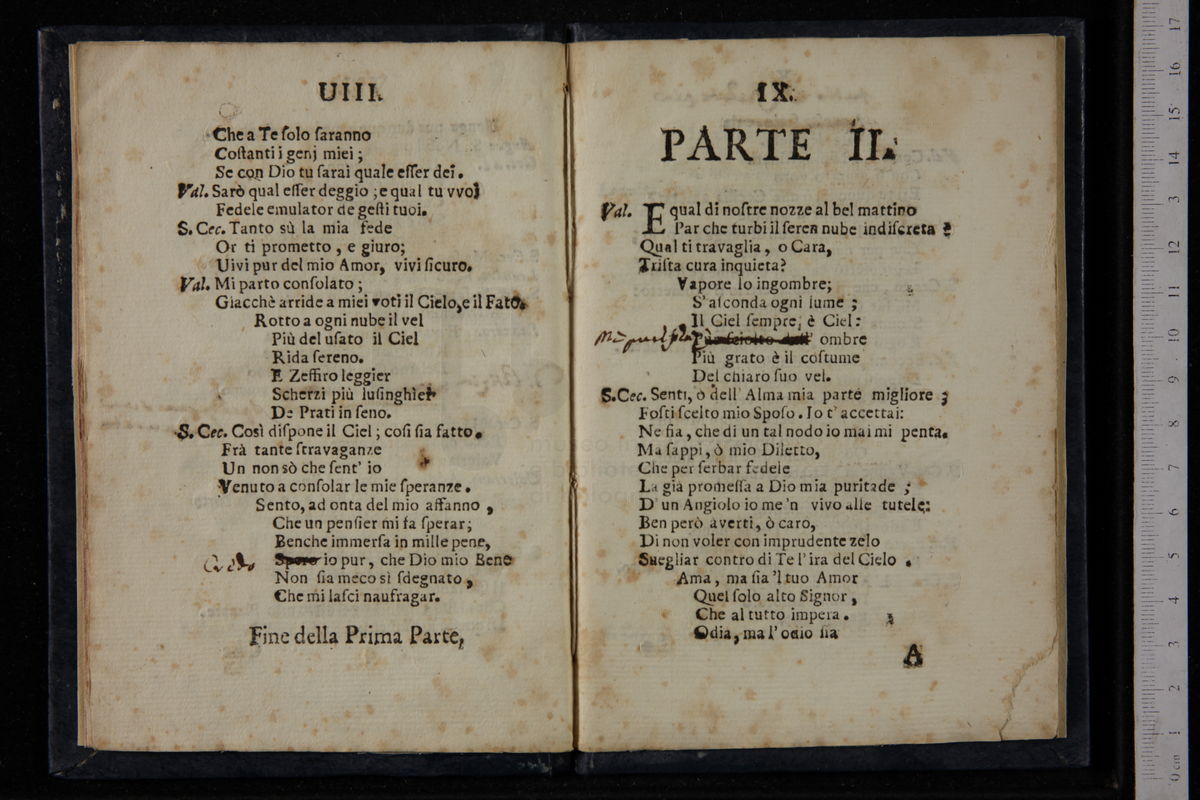 UIIII.
Che a Te ſolo ſaranno
Coſtanti i genj miei ;
Se con Dio tu ſarai quale eſſer dei.
Val. Sarò qual eſſer deggio ; e qual tu vvoi
Fedele emulator de geſti tuoi.
S. Cec. Tanto sù la mia fede
Or ti prometto , e giuro;
Uivi pur del mio Amor, vivi ſicuro.
Val. Mi parto conſolato ;
Giacchè arride a miei voti il Cielo, e il Fato.
Rotto a ogni nube il vel
Più del uſato il Ciel
Rida ſereno.
E Zeffiro leggier
Scherzi più luſinghier
De Prati in ſeno.
S. Cec. Così diſpone il Ciel ; coſi ſia fatto.
Frà tante ſtravaganze
Un non sò che ſent' io
Venuto a conſolar le mie ſperanze .
Sento, ad onta del mio affanno ,
Che un penſier mi fa ſperar;
Benche immerſa in mille pene,
Credo Spero io pur , che Dio mio Bene
Non ſia meco sì ſdegnato ,
Che mi laſci naufragar.
Fine della Prima Parte,
IX.
PARTE II.
Val. E qual di noſtre nozze al bel mattino
Par che turbi il ſeren nube indiſcreta ?
Qual ti travaglia , o Cara,
Triſta cura inquieta?
Vapore lo ingombre;
S'aſconda ogni lume ;
Il Ciel ſempre, è Ciel:
ombre
Più grato è il coſtume
Del chiaro ſuo vel.
S. Cec. Senti, ò dell' Alma mia parte migliore ;
Foſti ſcelto mio Spoſo . Io t' accettai:
Ne fia , che di un tal nodo io mai mi penta.
Ma ſappi , ò mio Diletto,
Che per ſerbar fedele
La già promeſſa a Dio mia puritade ;
D' un Angiolo io me 'n vivo alle tutele:
Ben però averti , ò caro,
Di non voler con imprudente zelo
Suegliar contro di Te l' ira del Cielo .
Ama , ma ſia 'l tuo Amor
Quel ſolo alto Signor ,
Che al tutto impera .
Odia, ma l' odio ſia
A
17
16
15
14
13
12
11
10
9
8
7
6
5
4
3
2
1
0 cm